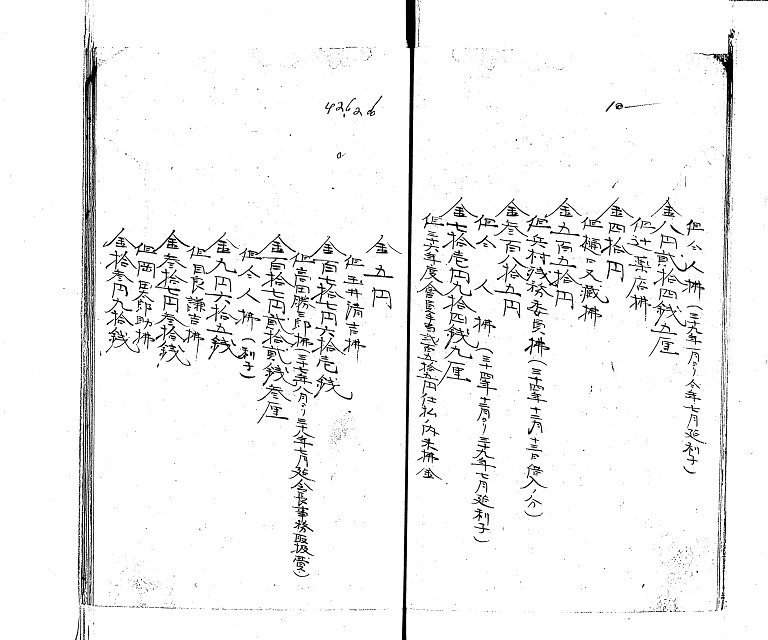 10
但仝人拂(三十九年一月ヨリ仝年七月延利子)
金八円貳拾四銭五厘
但辻薬店拂
金四拾円
但樋口又蔵拂
金五百五拾円
但兵村残務委員拂(三十四年十二月十三日借入ノ分)
金叁百八拾五円
但仝人拂(三十四年十二月ヨリ三十九年七月延利子)
金七拾壱円九拾四銭九厘
但三十六年度會長手当弐百五拾五円仕払ノ内未拂金
42626
金五円
但玉井清吉拂
金百七拾七円六拾壱銭
但高田勝三郎拂(三十七年八月ヨリ三十八年七月延会長事務取扱費)
金百拾七円貳拾貳銭叁厘
但仝人拂(利子)
金九円六拾五銭
但目良謙吉拂
金叁拾七円叁拾銭
但岡田太郎助拂
金拾叁円九拾銭